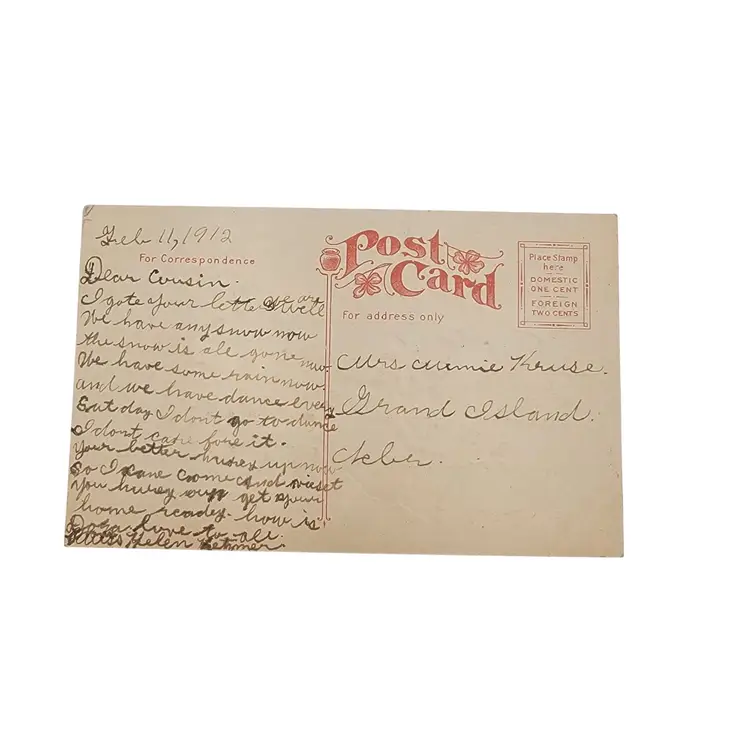 Feb 11, 1912
For Correspondence
Dear Cousin.
I gote your letter we are well
We have any snow now
the snow is ale gone now
We have some rain now.
and we have dance every
Satday I dont go to dance
I dont care fore it.
Your better hurey up now
So I kane come and viset
you hurey up get your
home readey. how is
love to all.
Miss Helen
Post
Card
For address only
Place Stamp
here
DOMESTIC
ONE CENT
FOREIGN
TWO CENTS
Mrs Minnie Kruse.
Grand Island.
Nebr.